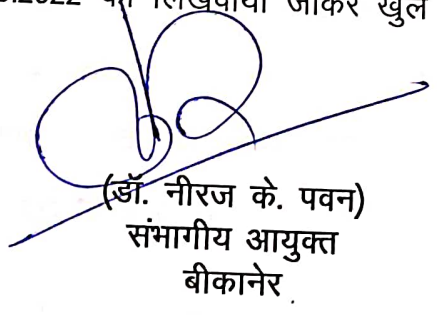 .2022 लिखवाया जाकर खुले
(डॉ. नीरज के. पवन)
संभागीय आयुक्त
बीकानेर